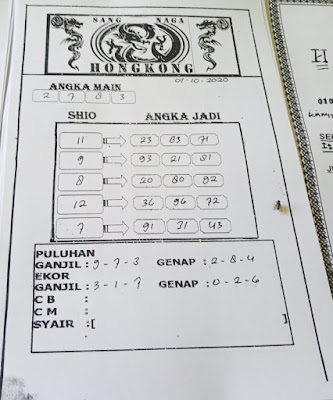 SANG NAGA
HONGKONG
01-10-2020
ANGKA MAIN
2 7 8 3
SHIO ANGKA JADI
11 23 83 71
9 93 21 81
8 20 80 92
12 36 96 72
7 91 31 43
PULUHAN
GANJIL : 9 - 7 - 3 GENAP : 2 - 8 - 4
EKOR
GANJIL : 3 - 1 - 7 GENAP : 0 - 2 - 6
C B :
C M :
SYAIR :[ ]
H
010
KAMIS
SE